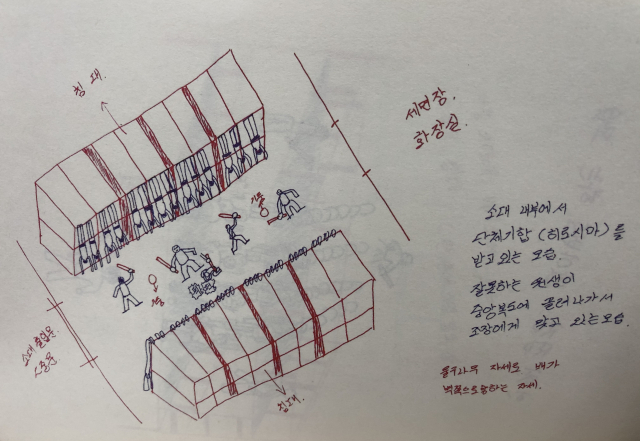 침대.
세면장.
화장실.
기둥
기둥
소대 내부에서
단체기합 (히로시마)를
받고있는 모습.
잘못하는 원생이
중앙복도에 불려나가서
조장에게 맞고 있는 모습.
소대 출입문.
침대.
자세로 배가
벽쪽으로 향하는 자세.